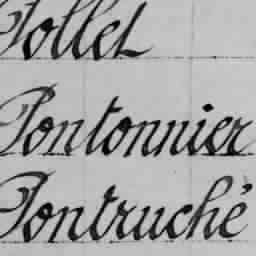 Pollet
Pontonnier
Pontruché